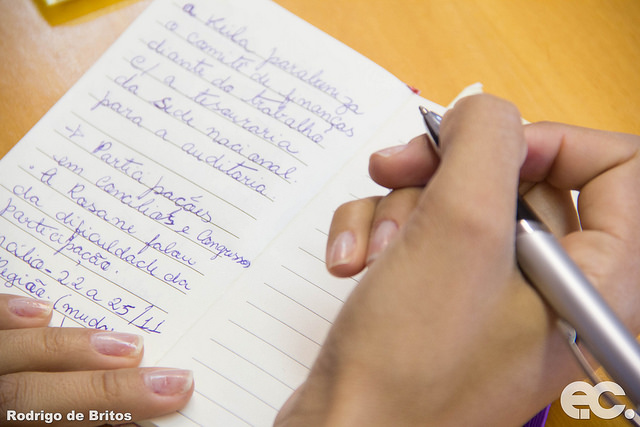 a Keila parabeniza
o comitê de finanças
diante do trabalho
c/ a tesouraria
da sede nacional.
para a auditoria.
→ Participações
em concílios e congressos
· A Rosane falou
da dificuldade da
participação.
- 22 a 25/11
Região. (muda
Rodrigo de Britos
ec.